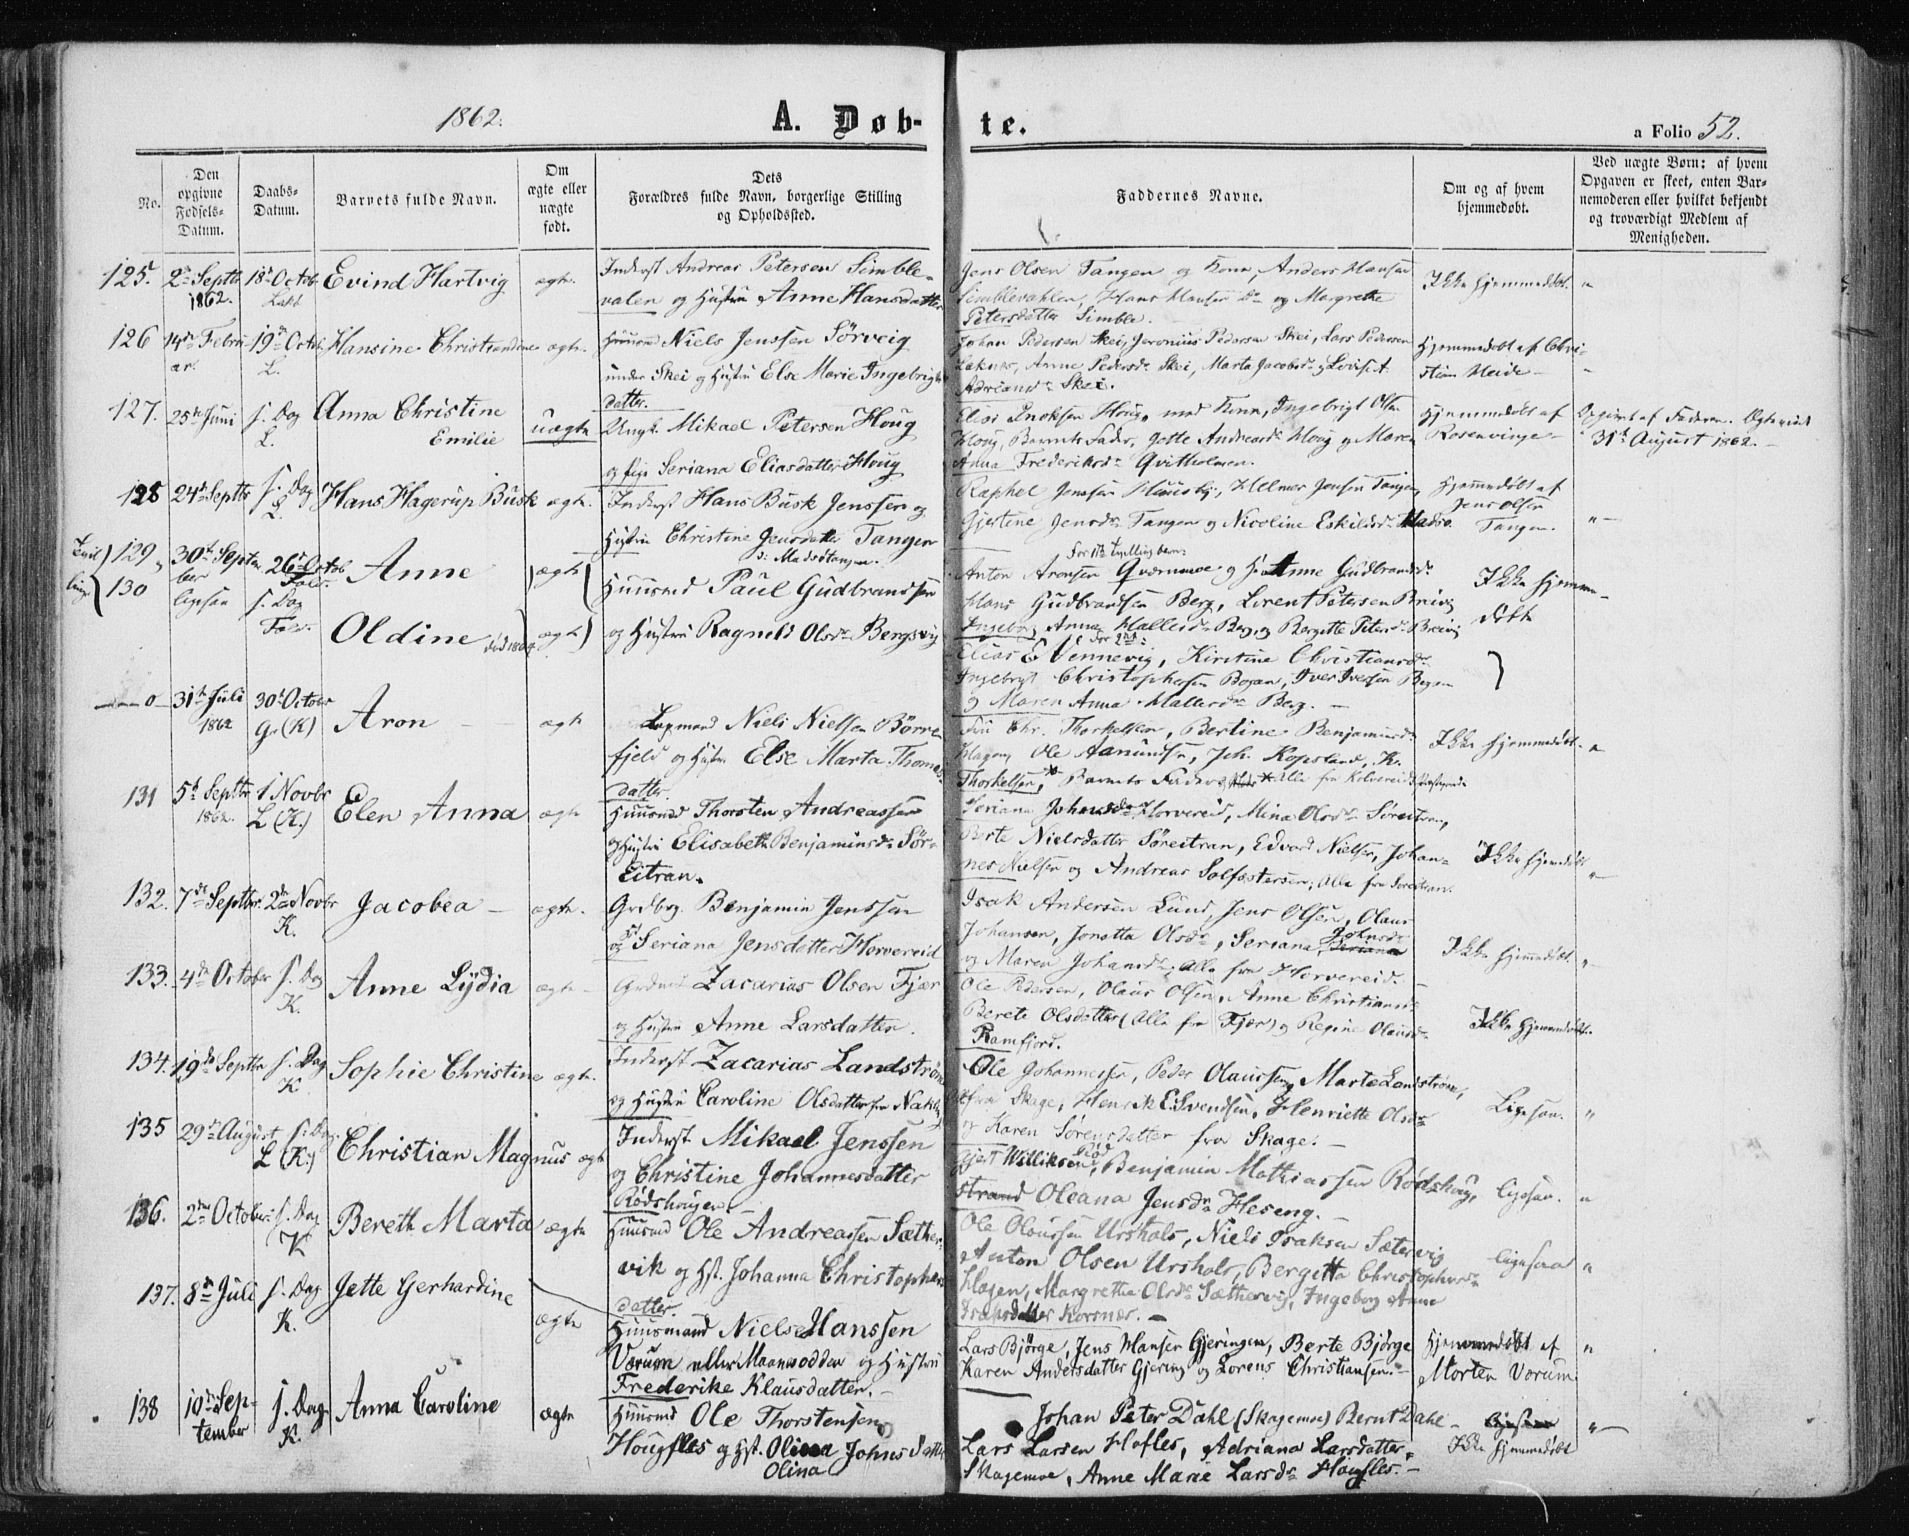 1862.
A. Døb-
te.
a Folio 52.
No.
Den opgivne Fødsels-Datum.
Daabs-Datum.
Barnets fulde Navn.
Om ægte eller nægte født.
Dets Forældres fulde Navn, borgerlige Stilling og Opholdssted.
Faddernes Navne.
Om og af hvem hjemmedøbt.
Ved uægte Børn: af hvem Opgaven er skeet, enten Barnemoderen eller hvilket bekjendt og troværdigt Medlem af Menigheden.
125. 2 Septbr 1862. 18 Octob. Evind Hartvig ægte.
Inderst Andreas Petersen Simble-
valen og Hustru Anne Hansdatter
Jens Olsen Tangen og Kone, Anders Hansen
Simblevahlen, Hans Hansen og Margrethe
Petersdatter Simble.
Ikke hjemmedøbt. "
126 14 Febru-
ar. 19 Octob. L. Hansine Christiandine ægte.
Huusmd Niels Jenssen Sörveig
under Skei og Hustru Else Marie Ingebrigts
datter.
Johan Pedersen Skei, Jeronius Pedersen Skei, Lars Pedersen
Anne Pedersd. Skei, Marta Jacobsd. Lovise A.
Adriansd. Skei.
Hjemmedøbt af Chri-
stian Heide
127. 25 Juni s. Dag L. Anna Christine
Emilie uægte
Ungk. Mikael Petersen Houg
og Pige Seriana Eliasdatter Houg
Elias Enoksen Houg, med Kone, Ingebrigt Olsen
Houg, Barnets Fader, Jette Andreasd. Houg og Maren
Anna Frederiksd. Qvitholmen.
Hjemmedøbt af
Rosenvinge
Opgivet af Faderen.
31 August 1862.
128 24 Septbr s. Dag L. Hans Hagerup Busk ægte.
Inderst Hans Busk Jenssen og
Hustru Christine Jensdatter Tangen
Madsøtangen.
Raphel Jenssen Helmer Jensen Tangen
Gjertine Jensd. Tangen og Nicoline Eskildsd. Madsø.
Hjemmedøbt af
Jens Olsen
Tangen. "
129 30 Septem-
ber 26 Octob. Anne ægte
130 ligesaa s. Dag Oldine ægte
Huusmd Paul Gudbrandsen
og Hustru Ragnild Olsd. Bergsvig
Anton Aronsen Qværnmoe og Anne Gudbrandsd.
Hans Gudbrandsen Berg, Lorents Petersen Breivig
Ingeborg Anna Hallesd. Berg, og Bergitte Petersd. Breivig
Elias E Vennevig, Kirstine Christiansd.
Ingebrigt Christophersen Bogen, Iver Iversen Bogen
og Maren Anna Hallesd. Berg. —
Ikke hjemme-
døbt
— o — 31 Juli
1862 30 October
Gr (K) Aron ægte
Niels Nielssen Börne
fjeld og Hustru Else Marta Thomas
datter.
Chr. Thorkelsen, Bertine Benjaminsd.
Ole Aamundsen, Joh. Kopsland, K.
Thorkelsen, Barnets Fader alle fra Kolvereid
Ikke hjemmedøbt. "
131 5 Septbr
1862. 1 Novbr
L (K.) Elen Anna ægte
Huusmd Thorsten Andreassen
og Hustru Elisabeth Benjaminsd. Sör-
Eitran.
Seriana Johnsd. Horvereid, Mina Olsd. Söreitran,
Berte Nielsdatter Söreitran, Edvard Nielsen, Johan-
nes Nielsen og Andreas Salfestersen; Alle fra Söreitran.
Ikke hjemmedøbt "
132. 7 Septbr. 2 Novbr
K. Jacobea — ægte.
Grdbg. Benjamin Jenssen
og Seriana Jensdatter Horvereid
Isak Andersen Lund, Jens Olsen, Olaus
Johansen, Jonetta Olsd., Seriana Johnsd.
og Maren Johansd., Alle fra Horvereid.
Ikke hjemmedøbt. "
133. 4 October s. Dag
K. Anne Lydia ægte
Zacarias Olsen Fjær
og Hustru Anne Larsdatter.
Ole Pedersen, Olaus Olsen, Anne Christiansd.
Berete Olsdatter (Alle fra Fjær) og Regine Olausd.
Ramfjord.
Ikke hjemmedøbt.
134. 19 Septbr s. Dag
K. Sophie Christine ægte.
Inderst Zacarias Landström
og Hustru Caroline Olsdatter fra
Ole Johannessen, Peder Olaussen, Marte Landström,
fra Skage, Henrik E. Svendsen, Henriette Olsd.
og Karen Sörensdatter fra Skage. —
Ligesaa. "
135 29 August s. Dag
L (K.) Christian Magnus ægte
Inderst Mikael Jenssen
og Christine Johannesdatter
Rödshougen. —
Gjert Williksen, Benjamin Mathiassen Rödshoug,
Oleana Jensd. Heseng. —
ligesaa. "
136. 2 October s. Dag
K Bereth Marta ægte
Huusmd Ole Andreassen Sæther-
vik og Hst. Johanna Christophers
datter.
Ole Olaussen Urshols, Niels Isaksen Sætervig
Anton Olsen Urshols, Bergitta Christophersd.
Hagen, Margrethe Olsd. Sæthervig, Ingeborg Anne
Isaksdatter Korsnær. —
ligesaa "
137. 8 Juli s. Dag
K. Jette Gerhardine ægte
Huusmand Niels Hanssen
Vorum eller og Hustru
Frederike Klausdatter. —
Lars Bjørge, Jens Hansen Gjeringen, Berte Bjørge
Karen Andersdatter Gjering og Lorens Christiansen. —
Hjemmedøbt af
Morten Vorum "
138 10 Sep-
tember s. Dag
K. Anna Caroline ægte
Huusmd Ole Thorstensen
Hougfles og Hst. Olina Johnsdatter
Olina
Johan Peter Dahl (Skagemoe) Bernt Dahl
Lars Larsen Hofles, Adriana Larsdatter
Skagemoe, Anne Marie Larsd. Hougfles. —
Ikke hjemmedøbt "